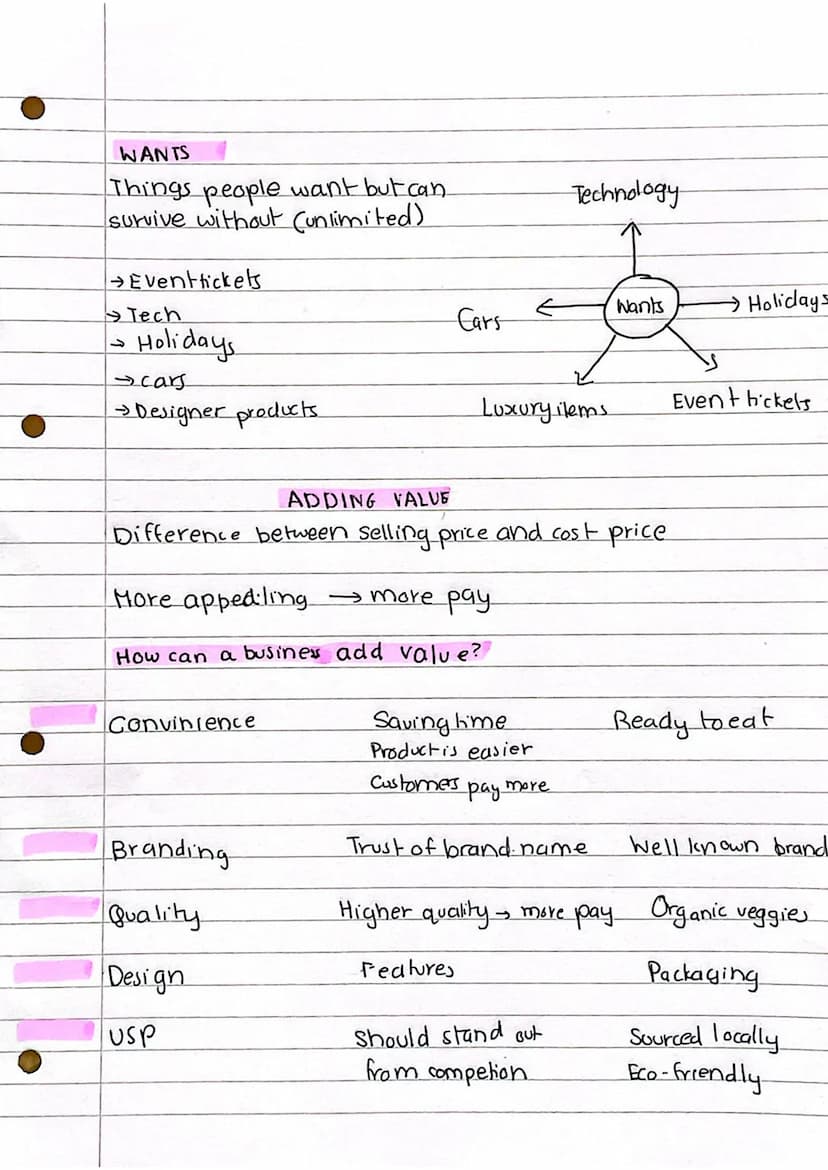 WANTS
Things people want but can
survive without (unlimited)
→ Event tickets
→ Tech
→ Holidays
→ cars
→ Designer products
Technology
Cars
Wants
Holidays
Luxury items
Event tickets
ADDING VALUE
Difference between selling price and cost price
More appealing → more pay
How can a business add value?
Convinience Saving time Ready to eat
Product is easier
Customers pay more
Branding Trust of brand name Well known brand
Quality Higher quality → more pay Organic veggies
Design Features Packaging
USP Should stand out Sourced locally
from competion Eco-friendly